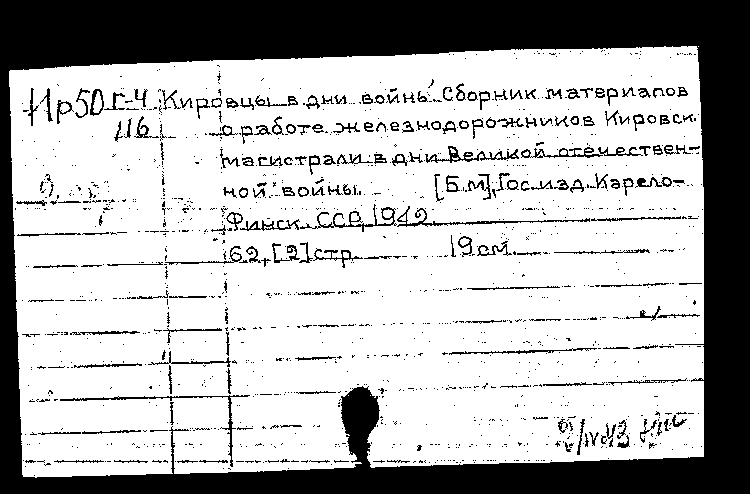 Ир50г-4 Кировцы в дни войны. Сборник материалов
116 о работе железнодорожников Кировск.
магистрали в дни Великой отечествен-
ной войны. [Б.м], Гос. изд. Карело-
Финск. ССР, 1942.
62, [2] стр. 19 см.